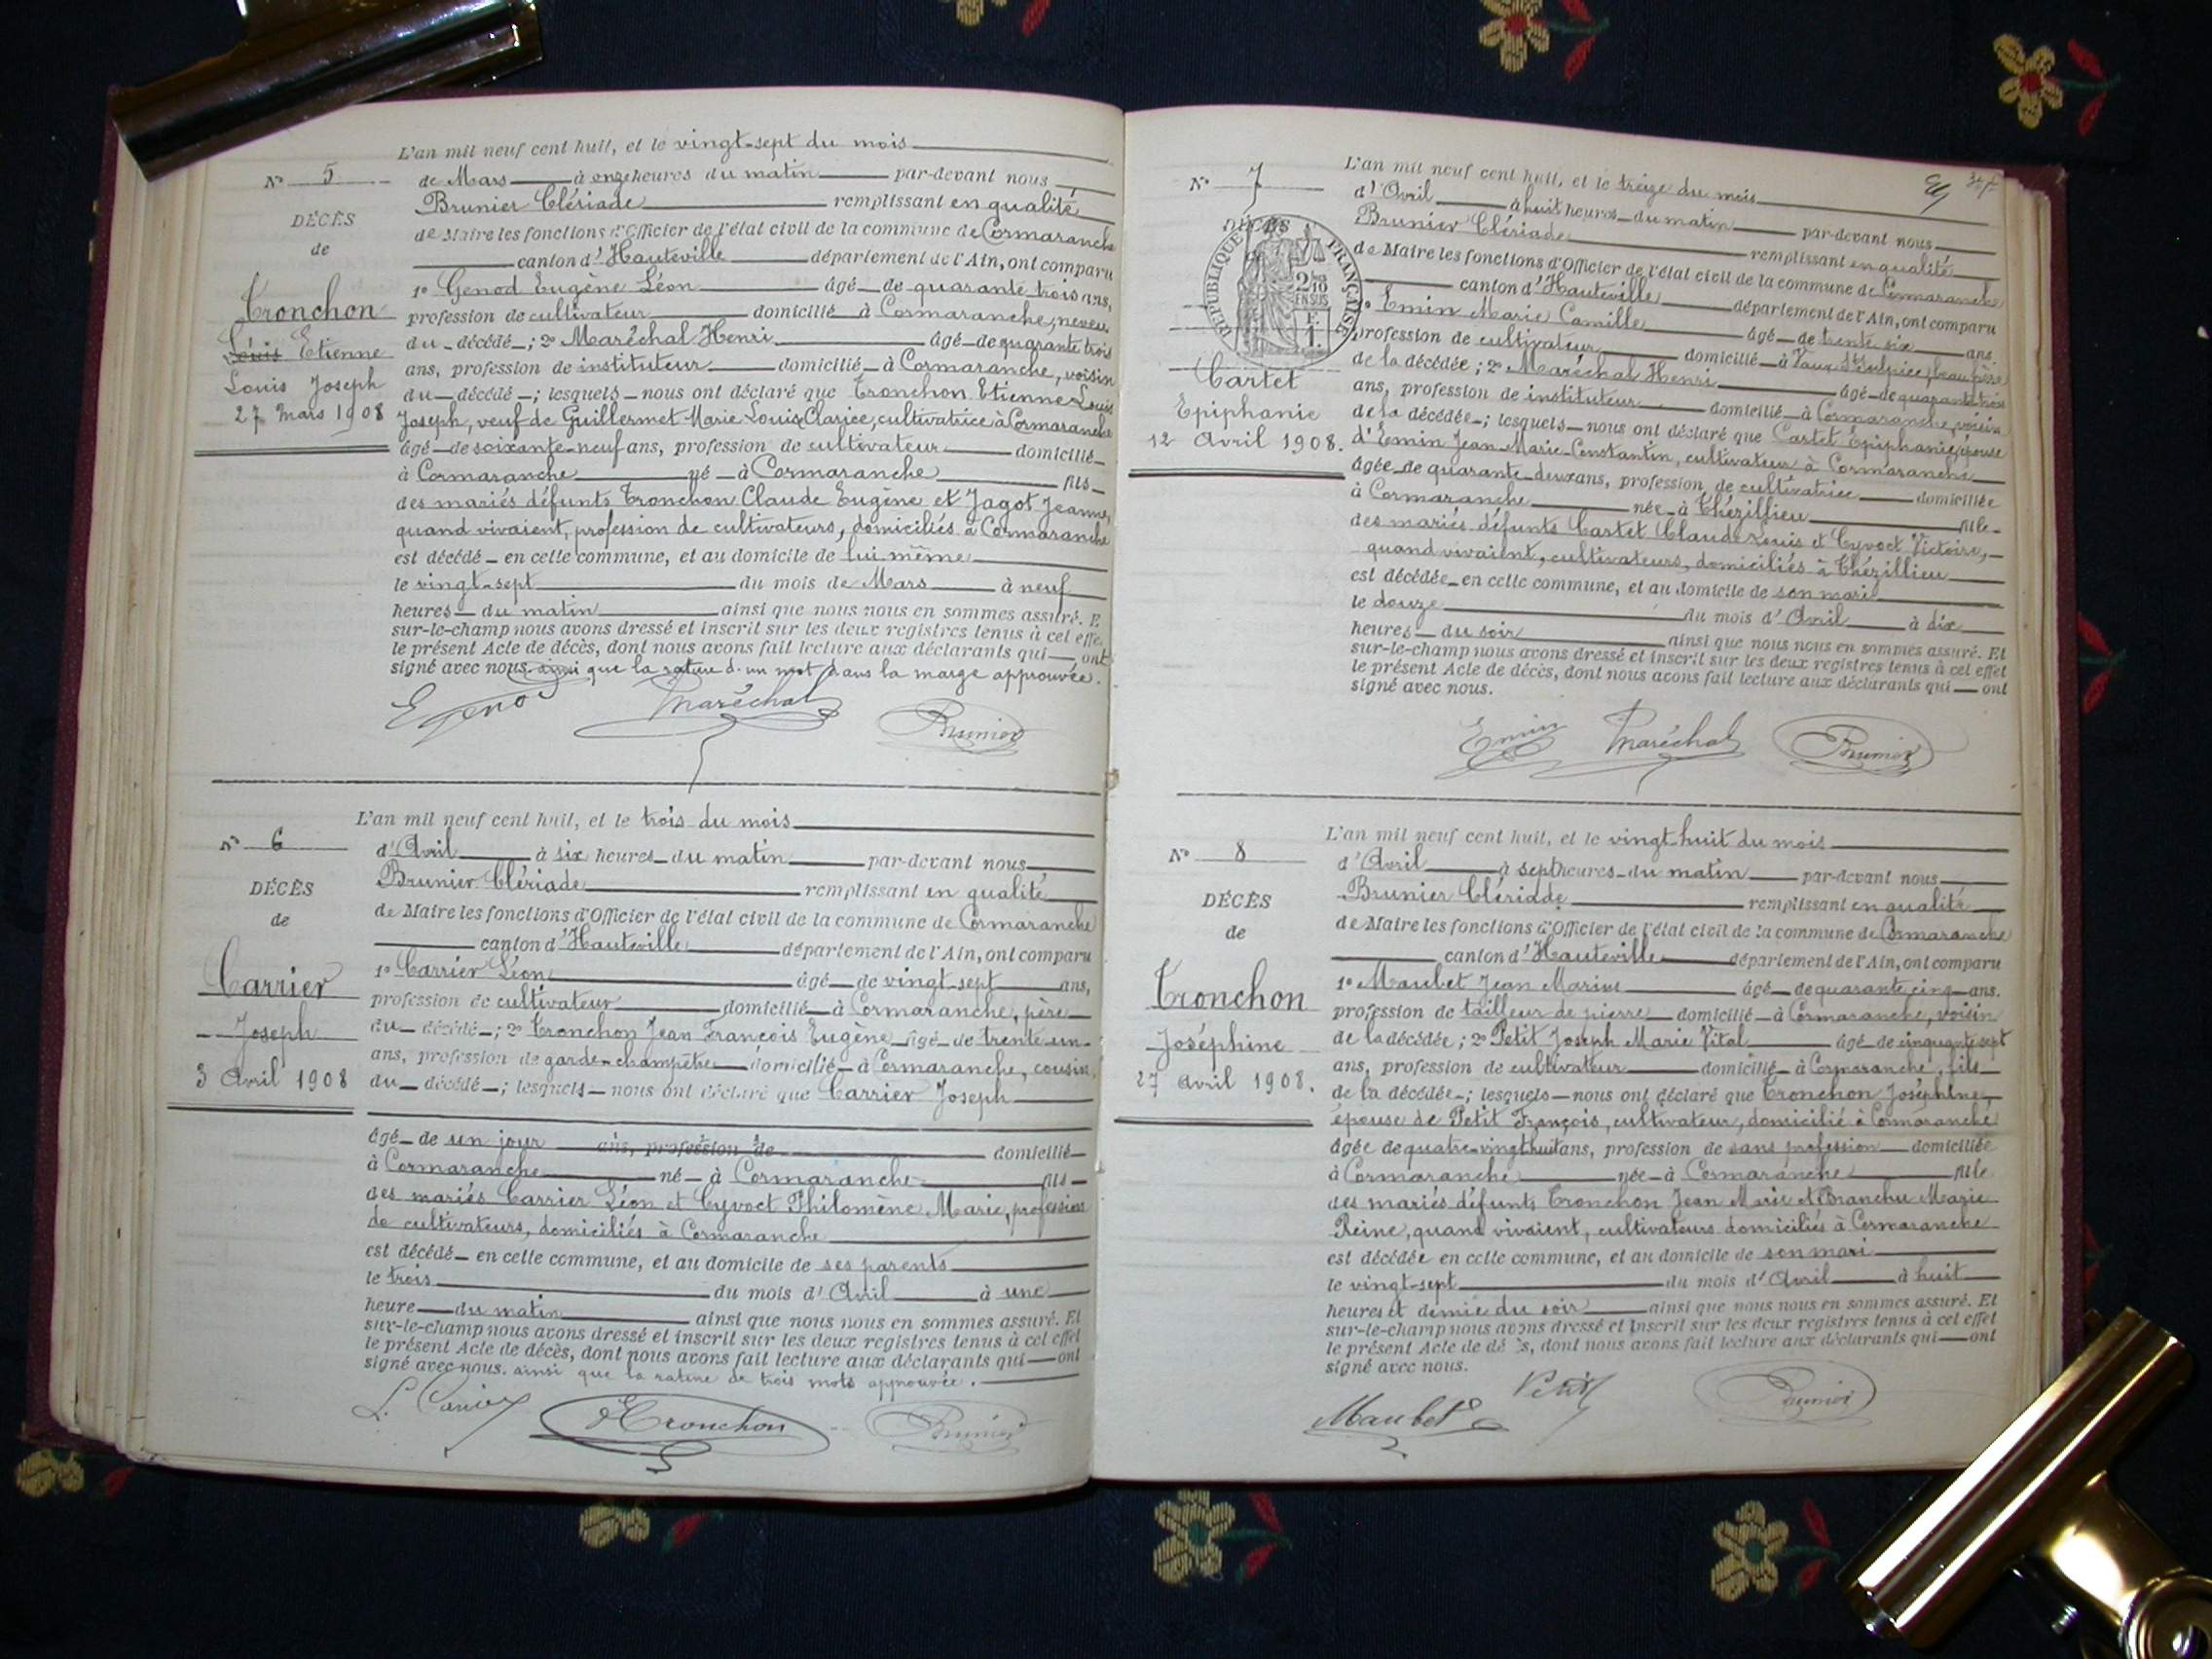 L'an mil neuf cent huit, et le vingt-sept du mois
N° 5
de Mars à onze heures du matin par-devant nous
Brunier Clériade remplissant en qualité
DÉCÈS
de Maire les fonctions d'Officier de l'état civil de la commune de Cormaranche
de
canton d'Hauteville département de l'Ain, ont comparu
1° Genod Eugène Léon âgé de quarante trois ans,
Tronchon
profession de cultivateur domicilié à Cormaranche, neveu
Louis Etienne
du décédé ; 2° Maréchal Henri âgé de quarante trois
ans, profession de instituteur domicilié à Cormaranche, voisin
Louis Joseph
du décédé ; lesquels nous ont déclaré que Tronchon Etienne Louis
27 Mars 1908
Joseph, veuf de Guillermet Marie Louise Clarice, cultivatrice à Cormaranche
âgé de soixante-neuf ans, profession de cultivateur domicilié
à Cormaranche né à Cormaranche fils
des mariés défunts Tronchon Claude Eugène et Jagot Jeanne,
quand vivaient, profession de cultivateurs, domiciliés à Cormaranche
est décédé en cette commune, et au domicile de lui même
le vingt-sept du mois de Mars à neuf
heures du matin ainsi que nous nous en sommes assuré. E
sur-le-champ nous avons dressé et inscrit sur les deux registres tenus à cet effe
le présent Acte de décès, dont nous avons fait lecture aux déclarants qui ont
signé avec nous. ainsi que la rature d'un mot dans la marge approuvée.
E Genod Maréchal Brunier
L'an mil neuf cent huit, et le trois du mois
N° 6
d'Avril à six heures du matin par-devant nous
Brunier Clériade remplissant en qualité
DÉCÈS
de Maire les fonctions d'Officier de l'état civil de la commune de Cormaranche
de
canton d'Hauteville département de l'Ain, ont comparu
1° Carrier Léon âgé de vingt-sept ans,
Carrier
profession de cultivateur domicilié à Cormaranche, père
Joseph
du décédé ; 2° Tronchon Jean François Eugène âgé de trente-un
ans, profession de garde-champêtre domicilié à Cormaranche, cousin
3 Avril 1908
du décédé ; lesquels nous ont déclaré que Carrier Joseph
âgé de un jour ans, profession de domicilié
à Cormaranche né à Cormaranche fils
des mariés Carrier Léon et Cyvoct Philomène Marie, profession
de cultivateurs, domiciliés à Cormaranche
est décédé en cette commune, et au domicile de ses parents
le trois du mois d'Avril à une
heure du matin ainsi que nous nous en sommes assuré. Et
sur-le-champ nous avons dressé et inscrit sur les deux registres tenus à cet effet
le présent Acte de décès, dont nous avons fait lecture aux déclarants qui ont
signé avec nous. ainsi que la rature de trois mots approuvée.
L. Carrier Tronchon Brunier
L'an mil neuf cent huit, et le treize du mois
N° 7
d'Avril à huit heures du matin par-devant nous
Brunier Clériade remplissant en qualité
DÉCÈS
RÉPUBLIQUE FRANÇAISE
2/10 EN SUS
F. 1.
de Maire les fonctions d'Officier de l'état civil de la commune de Cormaranche
canton d'Hauteville département de l'Ain, ont comparu
1° Emin Marie Camille âgé de trente six ans,
profession de cultivateur domicilié à Vaux St Sulpice, beau frère
Cartet
de la décédée ; 2° Maréchal Henri âgé de quarante trois
ans, profession de instituteur domicilié à Cormaranche, voisin
Epiphanie
de la décédée ; lesquels nous ont déclaré que Cartet Epiphanie, épouse
12 Avril 1908.
d'Emin Jean-Marie-Constantin, cultivateur à Cormaranche
âgée de quarante-deux ans, profession de cultivatrice domiciliée
à Cormaranche née à Thézillieu fille
des mariés défunts Cartet Claude Louis et Cyvoct Victoire,
quand vivaient, cultivateurs, domiciliés à Thézillieu
est décédée en cette commune, et au domicile de son mari
le douze du mois d'Avril à dix
heures du soir ainsi que nous nous en sommes assuré. Et
sur-le-champ nous avons dressé et inscrit sur les deux registres tenus à cet effet
le présent Acte de décès, dont nous avons fait lecture aux déclarants qui ont
signé avec nous.
Emin Maréchal Brunier
L'an mil neuf cent huit, et le vingt-huit du mois
N° 8
d'Avril à sept heures du matin par-devant nous
Brunier Clériade remplissant en qualité
DÉCÈS
de Maire les fonctions d'Officier de l'état civil de la commune de Cormaranche
de
canton d'Hauteville département de l'Ain, ont comparu
1° Maubet Jean Marius âgé de quarante cinq ans.
Tronchon
profession de tailleur de pierre domicilié à Cormaranche, voisin
Joséphine
de la décédée ; 2° Petit Joseph Marie Vital âgé de cinquante sept
ans, profession de cultivateur domicilié à Cormaranche, fils
27 Avril 1908.
de la décédée ; lesquels nous ont déclaré que Tronchon Joséphine,
épouse de Petit François, cultivateur, domicilié à Cormaranche
âgée de quatre-vingt-huit ans, profession de sans profession domiciliée
à Cormaranche née à Cormaranche fille
des mariés défunts Tronchon Jean Marie et Branchu Marie
Reine, quand vivaient, cultivateurs domiciliés à Cormaranche
est décédée en cette commune, et au domicile de son mari
le vingt-sept du mois d'Avril à huit
heures et demie du soir ainsi que nous nous en sommes assuré. Et
sur-le-champ nous avons dressé et inscrit sur les deux registres tenus à cet effet
le présent Acte de décès, dont nous avons fait lecture aux déclarants qui ont
signé avec nous.
Maubet Petit Brunier